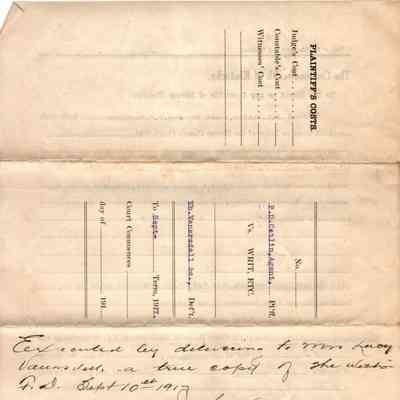 PLAINTIFF'S COSTS.
Judge's Cost
Constable's Cost
Witnesses' Cost
No.
P.D.Catlin, Agent, Plff.
Vs. WHIT, ETC.
Ed. Vanarsdall &c., Def't.
To Sept. Term, 1917.
Court Commences
day of 191
Executed by delivering to Mrs Lucy
Vanarsdall, a true copy of the within
F.D. Sept 10th 1917